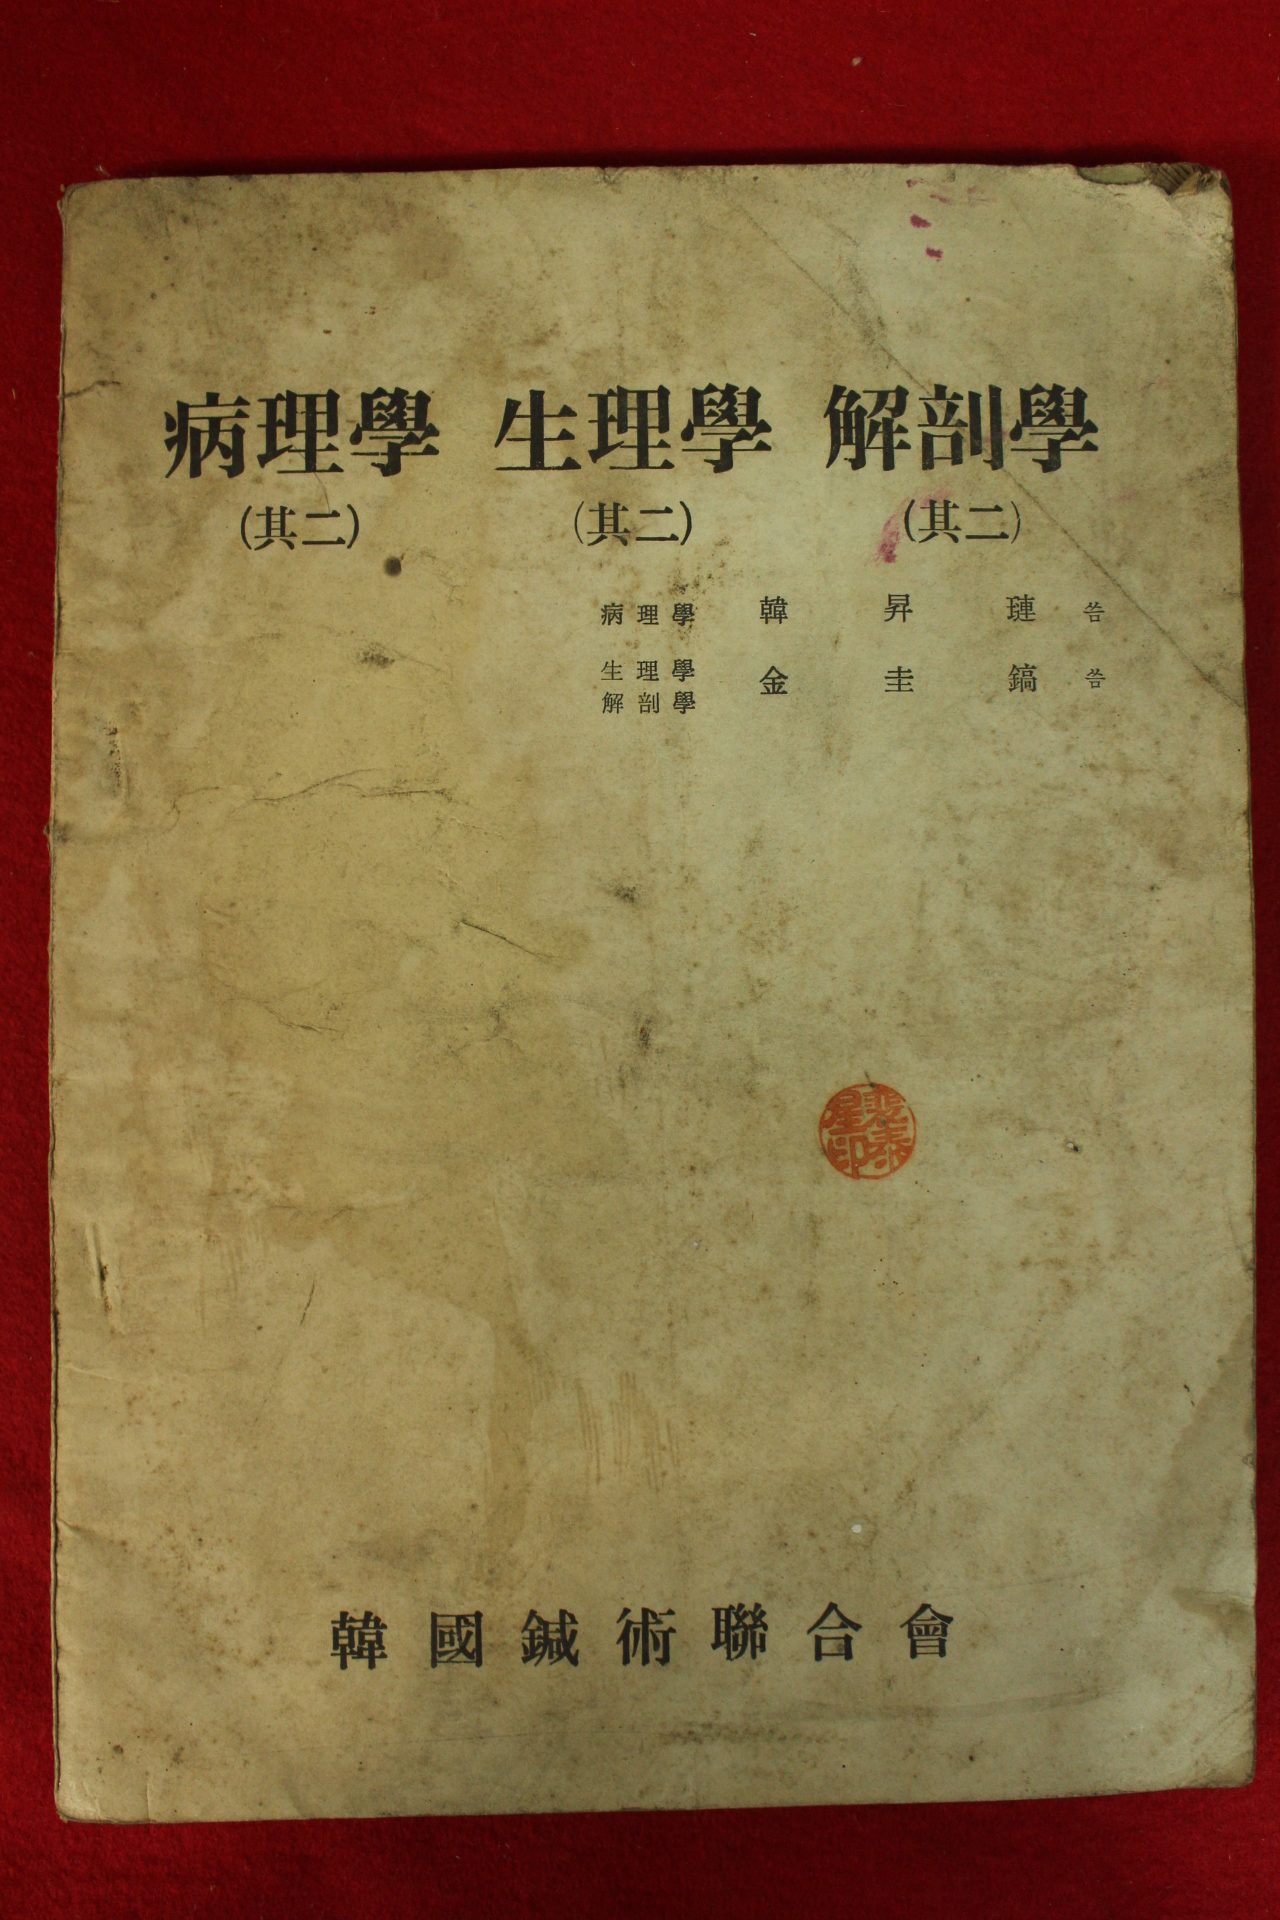 病理學 生理學 解剖學
(其二) (其二) (其二)
病理學 韓昇璉 씀
生理學
解剖學 金圭鎬 씀
裴泰星印
韓國鍼術聯合會